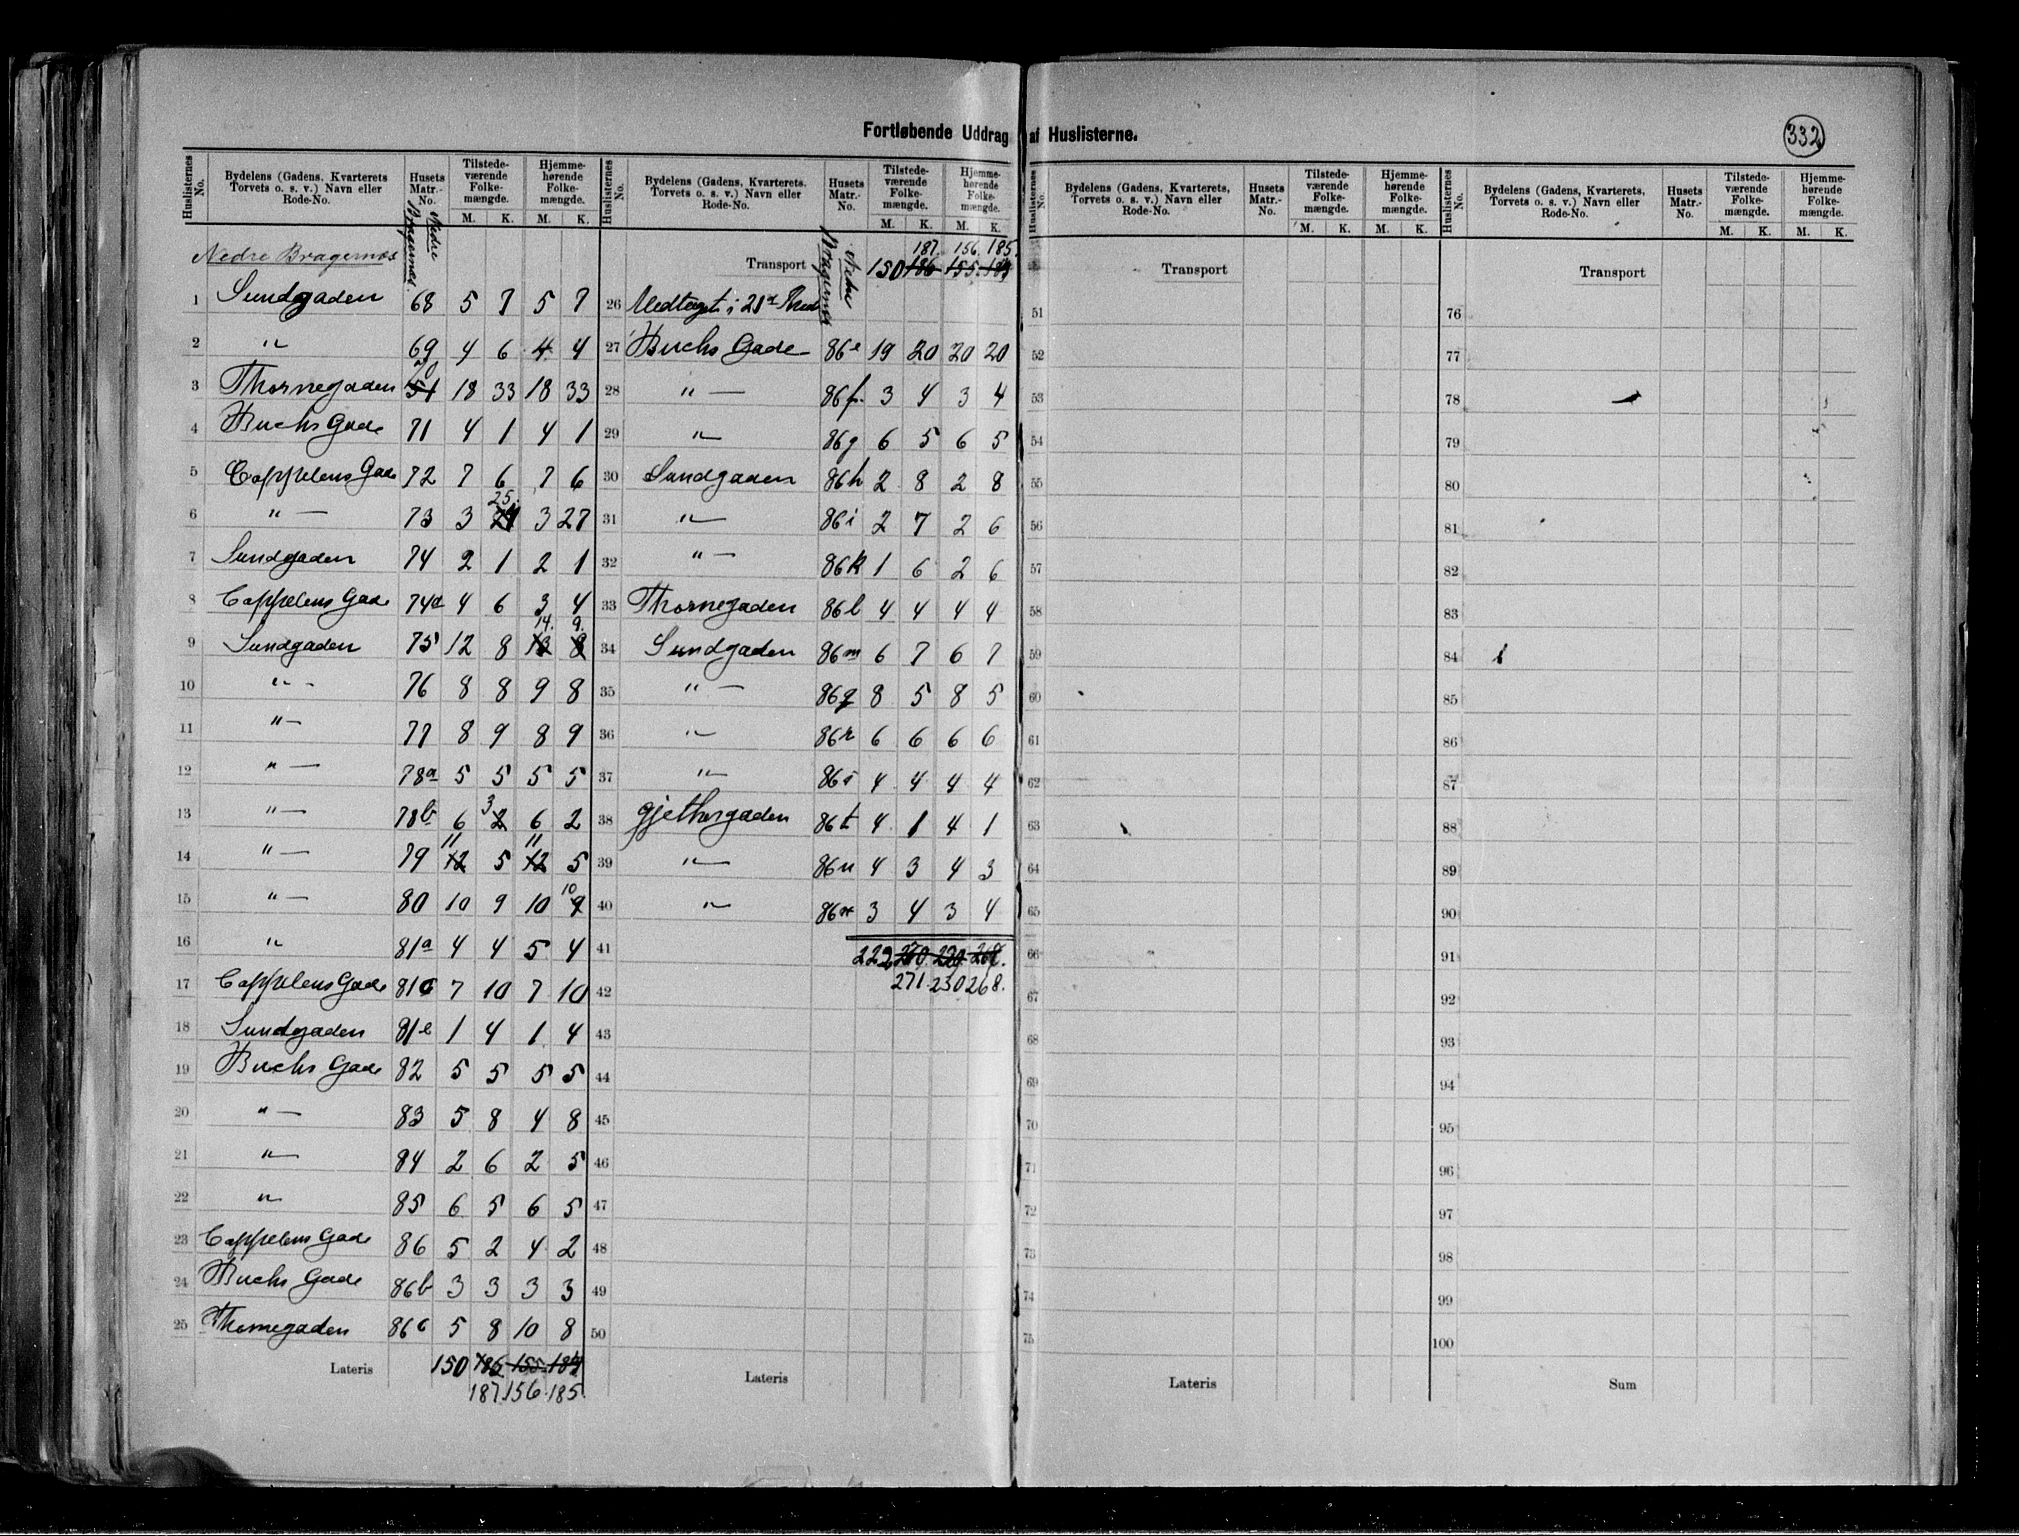 Fortløbende Uddrag af Huslisterne.
332
Huslisternes No.
Bydelens (Gadens, Kvarterets Torvets o. s. v.) Navn eller Rode-No.
Husets Matr.-No.
Tilstede-værende Folke-mængde.
Hjemme-hørende Folke-mængde.
M. K. M. K.
Nedre Bragernæs
Nedre Bragernæs.
1 Sundgaden 68 5 7 5 7
2 " 69 4 6 4 4
3 Thornegaden 51 18 33 18 33
4 Buchs Gade 71 4 1 4 1
5 Cappelens Gade 72 7 6 7 6
6 " — 73 3 25. 3 27
7 Sundgaden 74 2 1 2 1
8 Cappelens Gade 74a 4 6 3 4
9 Sundgaden 75 12 8 13 14. 8 9.
10 " - 76 8 8 9 8
11 " — 77 8 9 8 9
12 " — 78a 5 5 5 5
13 " — 78b 6 2 3 6 2
14 " — 79 12 11 5 12 11 5
15 " — 80 10 9 10 9 10
16 " 81a 4 4 5 4
17 Cappelens Gade 81c 7 10 7 10
18 Sundgaden 81e 1 4 1 4
19 Buchs Gade 82 5 5 5 5
20 " — 83 5 8 4 8
21 " 84 2 6 2 5
22 " 85 6 5 6 5
23 Cappelens Gade 86 5 2 4 2
24 Buchs Gade 86b 3 3 3 3
25 Thornegaden 86c 5 8 10 8
Lateris 150 186 155 184
187. 156. 185.
Huslisternes No.
Bydelens (Gadens, Kvarterets. Torvets o. s. v.) Navn eller Rode-No.
Husets Matr.-No.
Tilstede-værende Folke-mængde.
Hjemme-hørende Folke-mængde.
M. K. M. K.
Nedre Bragernæs
187. 156. 185.
Transport 150 186 155 184
26 Medtaget i 21de Rode
27 Buchs Gade 86e 19 20 20 20
28 " — 86f. 3 4 3 4
29 " 86g 6 5 6 5
30 Sundgaden 86h 2 8 2 8
31 " 86i 2 7 2 6
32 " — 86k 1 6 2 6
33 Thornegaden 86l 4 4 4 4
34 Sundgaden 86m 6 7 6 7
35 " — 86q 8 5 8 5
36 " 86r 6 6 6 6
37 " 86s 4 4 4 4
38 Gjethusgaden 86t 4 1 4 1
39 " 86u 4 3 4 3
40 " 3 4 3 4
41 222 270.
42 271. 230 268.
43
44
45
46
47
48
49
50
Lateris
Huslisternes No.
Bydelens (Gadens, Kvarterets, Torvets o. s. v.) Navn eller Rode-No.
Husets Matr.-No.
Tilstede-værende Folke-mængde.
Hjemme-hørende Folke-mængde.
M. K. M. K.
Transport
51
52
53
54
55
56
57
58
59
60
61
62
63
64
65
66
67
68
69
70
71
72
73
74
75
Lateris
Huslisternes No.
Bydelens (Gadens, Kvarterets, Torvets o. s. v.) Navn eller Rode-No.
Husets Matr.-No.
Tilstede-værende Folke-mængde.
Hjemme-hørende Folke-mængde.
M. K. M. K.
Transport
76
77
78
79
80
81
82
83
84
85
86
87
88
89
90
91
92
93
94
95
96
97
98
99
100
Sum